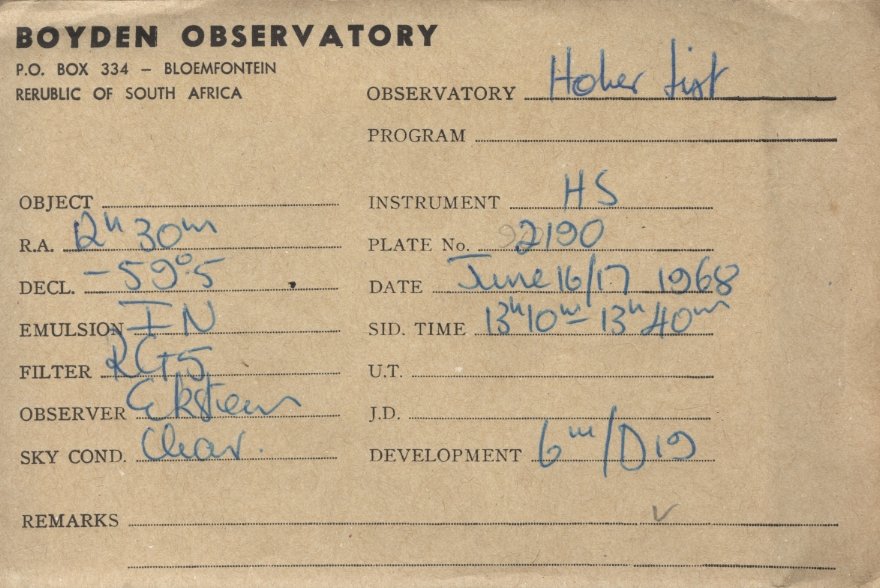 BOYDEN OBSERVATORY
P.O. BOX 334 – BLOEMFONTEIN
RERUBLIC OF SOUTH AFRICA
OBSERVATORY Hoher List
PROGRAM
OBJECT
INSTRUMENT HS
R.A. 12h 30m
PLATE No. 2190
DECL. -59°.5
DATE June 16/17 1968
EMULSION IN
SID. TIME 13h10m – 13h40m
FILTER RG5
U.T.
OBSERVER Eksteen
J.D.
SKY COND. Clear.
DEVELOPMENT 6m/D19
REMARKS